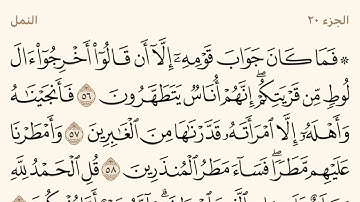 الجزء ٢٠
النمل
۞ فَمَا كَانَ جَوَابَ قَوْمِهِۦٓ إِلَّآ أَن قَالُوٓا۟ أَخْرِجُوٓا۟ ءَالَ
لُوطٍ مِّن قَرْيَتِكُمْ ۖ إِنَّهُمْ أُنَاسٌ يَتَطَهَّرُونَ ٥٦ فَأَنجَيْنَٰهُ
وَأَهْلَهُۥٓ إِلَّا ٱمْرَأَتَهُۥ قَدَّرْنَٰهَا مِنَ ٱلْغَٰبِرِينَ ٥٧ وَأَمْطَرْنَا
عَلَيْهِم مَّطَرًا ۖ فَسَآءَ مَطَرُ ٱلْمُنذَرِينَ ٥٨ قُلِ ٱلْحَمْدُ لِلَّهِ